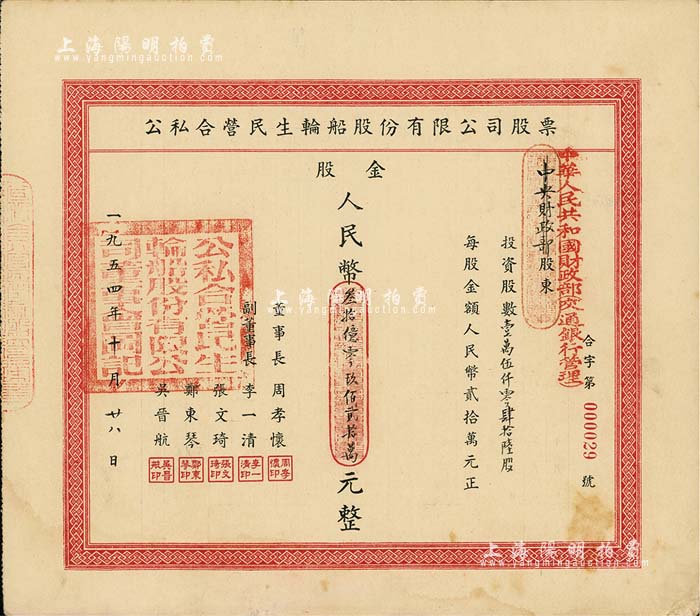 上海陽明拍賣
www.yangmingauction.com
公私合營民生輪船股份有限公司股票
中華人民共和國財政部交通銀行管理
中央財政部股東
合字第000029號
投資股數壹萬伍仟零肆拾陸股
每股金額人民幣貳拾萬元正
股金
人民幣叁拾億零玖佰貳拾萬元整
董事長 周孝懷
副董事長 李一清
張文琦
鄭東琴
吳晉航
周孝懷印
李一清印
張文琦印
鄭東琴印
吳晉航印
公私合營民生輪船股份有限公司董事會圖記
一九五四年十月廿八日
上海陽明拍賣
www.yangmingauction.com
上海陽明拍賣
www.yangmingauction.com